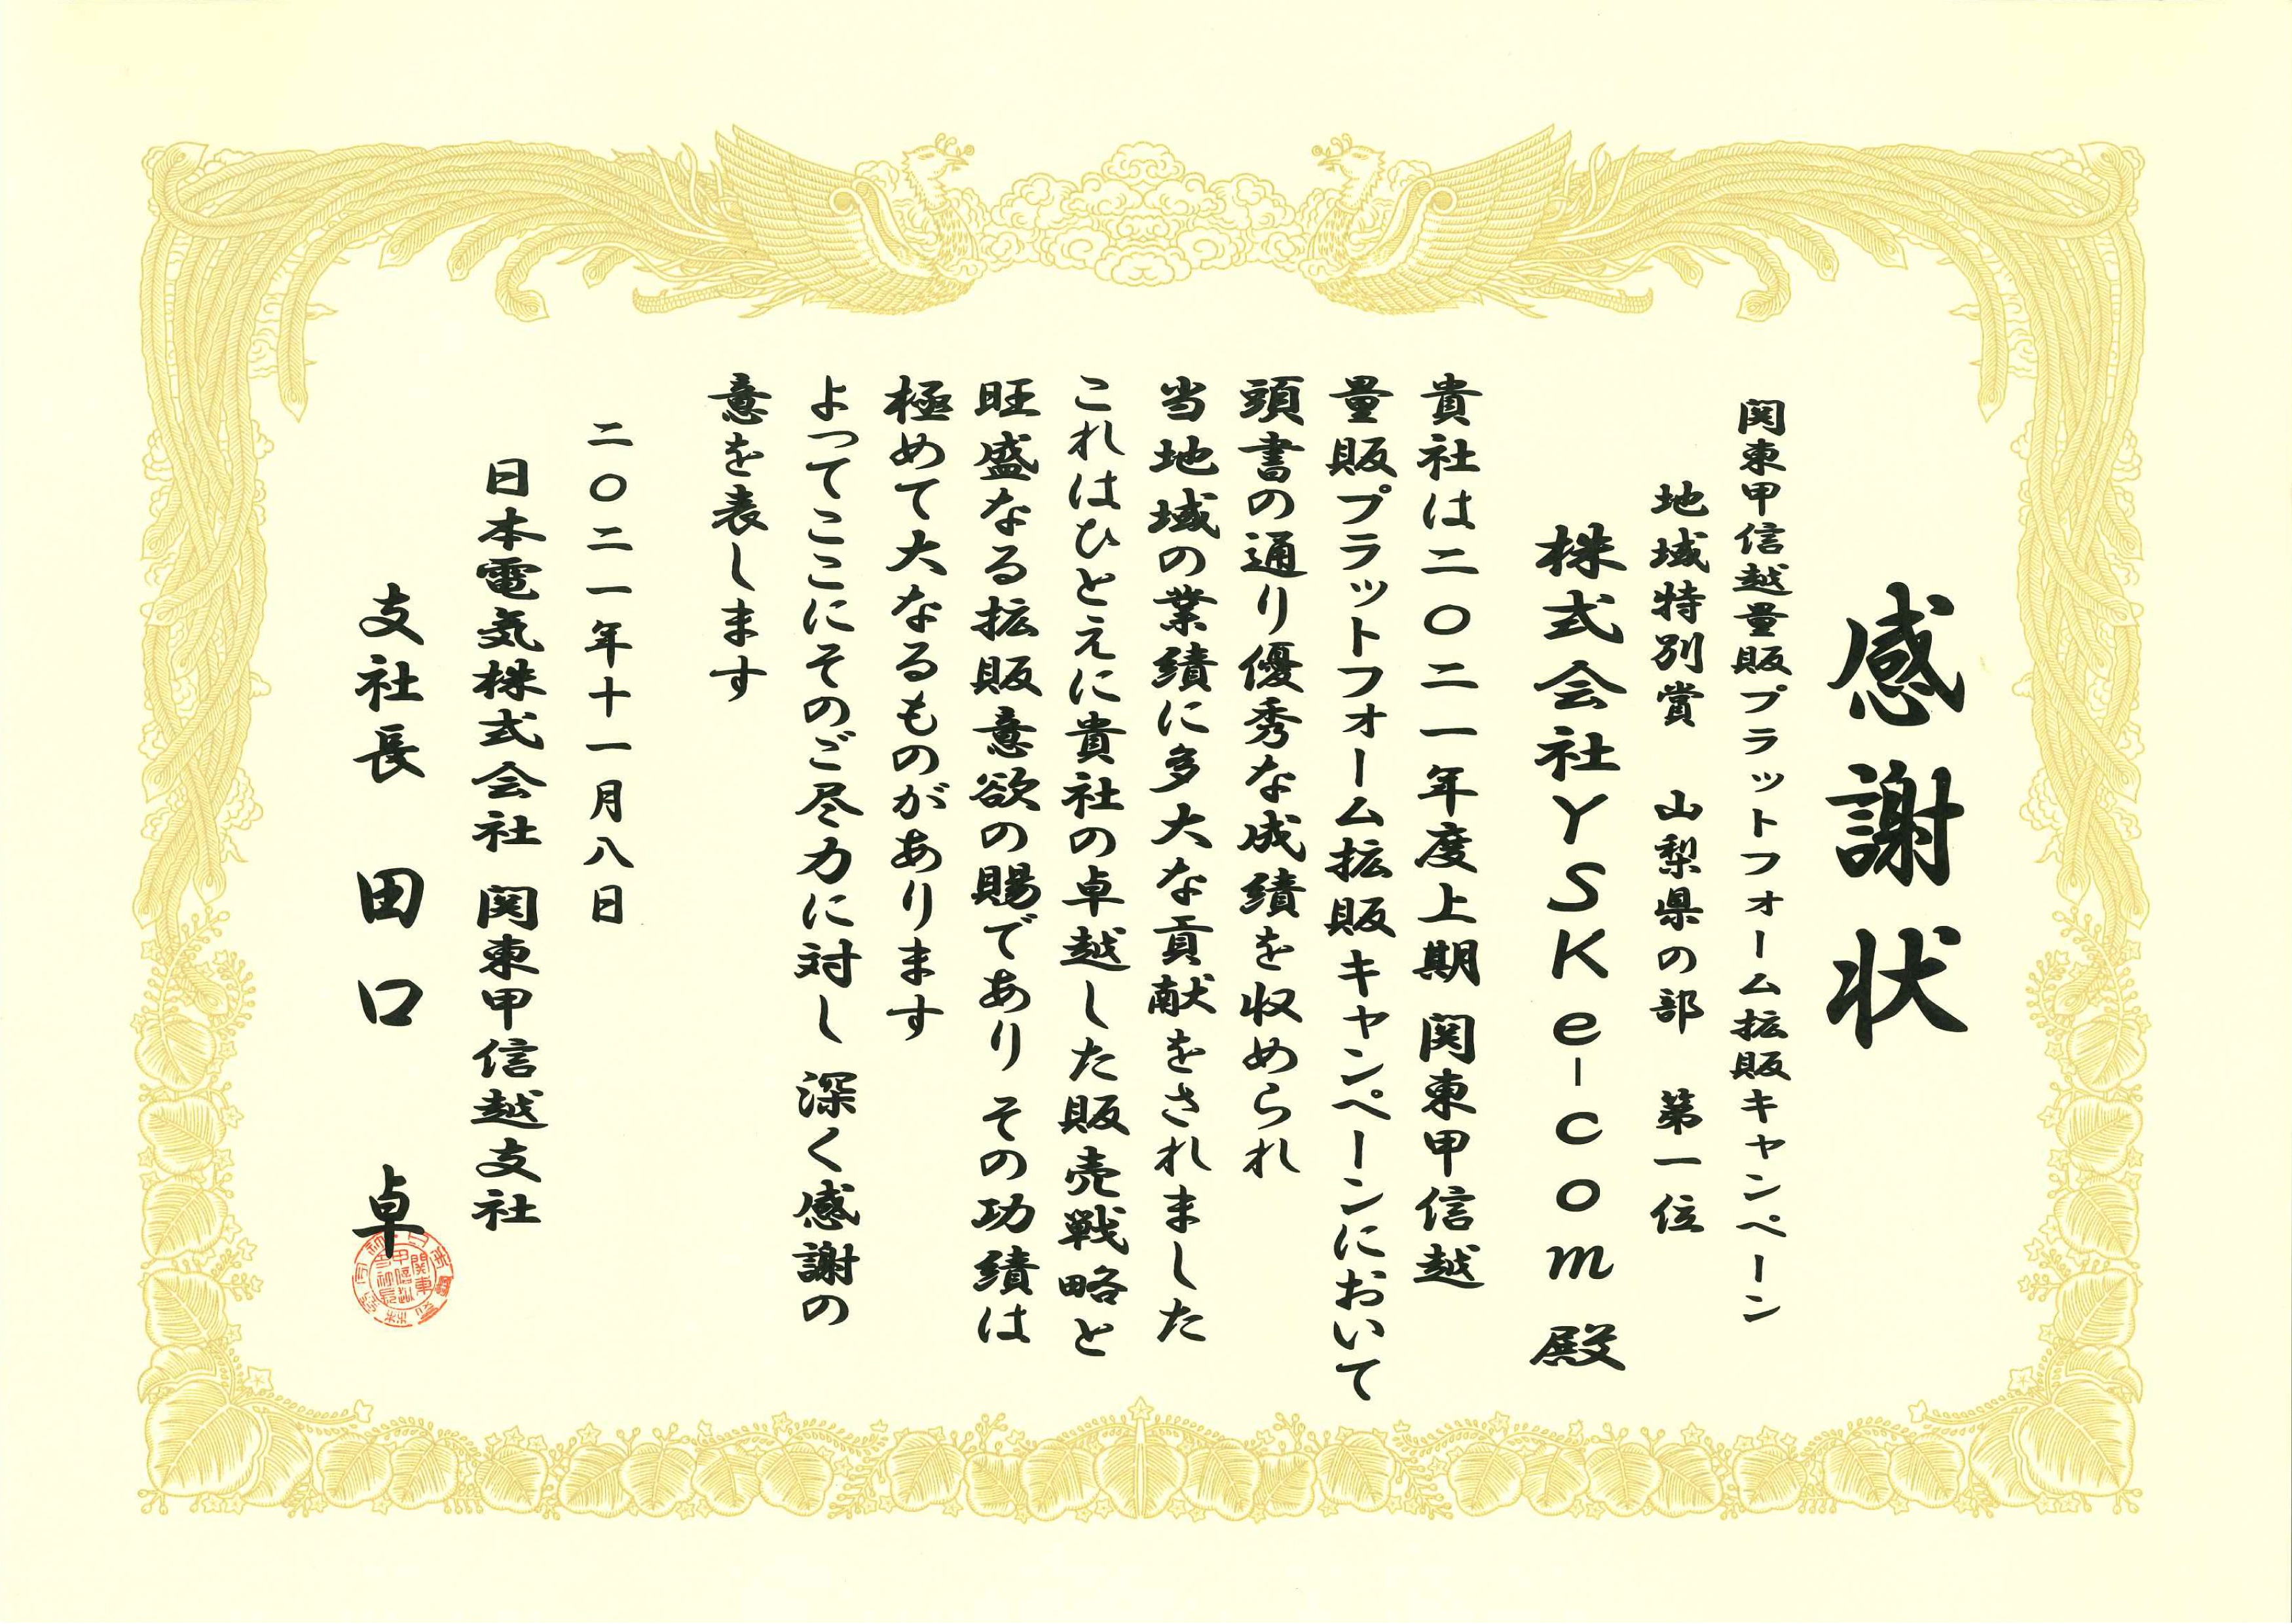 感謝状
関東甲信越量販プラットフォーム拡販キャンペーン
地域特別賞　山梨県の部　第一位
株式会社YSKe-com 殿
貴社は二〇二一年度上期 関東甲信越
量販プラットフォーム拡販キャンペーンにおいて
頭書の通り優秀な成績を収められ
当地域の業績に多大な貢献をされました
これはひとえに貴社の卓越した販売戦略と
旺盛なる拡販意欲の賜であり その功績は
極めて大なるものがあります
よってここにそのご尽力に対し 深く感謝の
意を表します
二〇二一年十一月八日
日本電気株式会社 関東甲信越支社
支社長　田口　卓